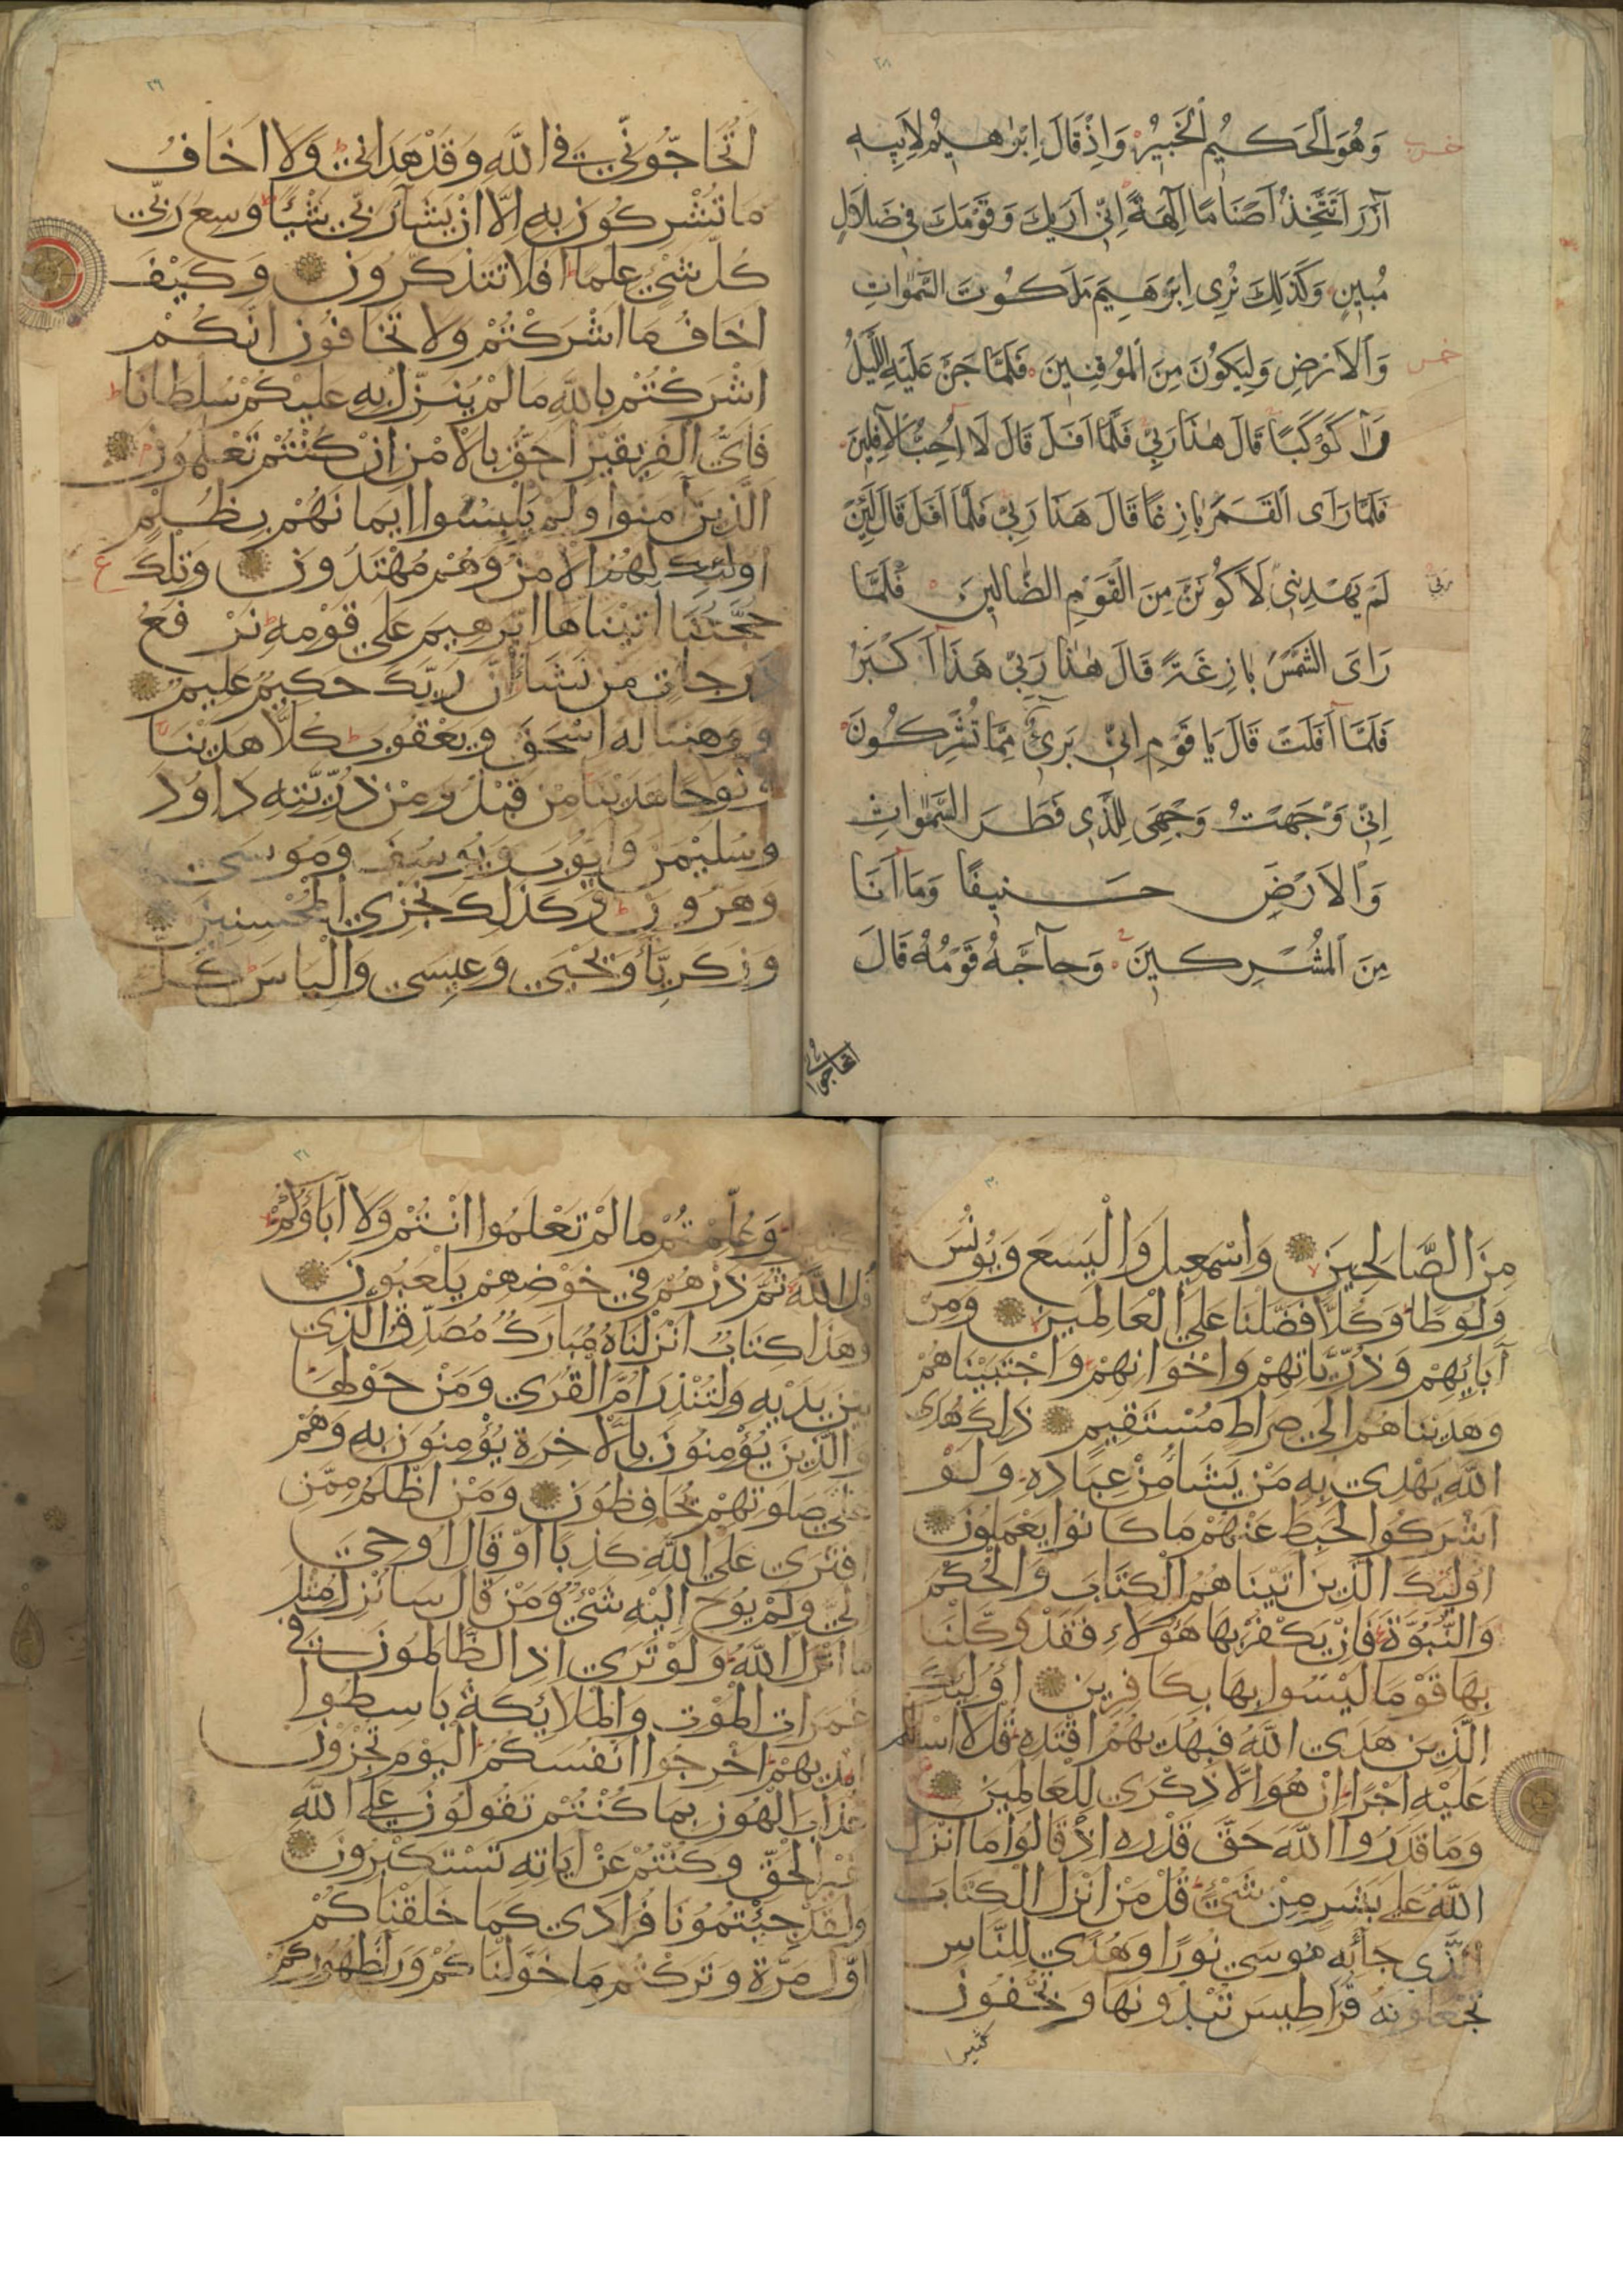 ٢٨
وَهُوَ الْحَكِيمُ الْخَبِيرُ وَاِذْ قَالَ اِبْرٰهِيمُ لِاَبِيهِ
آزَرَ اَتَتَّخِذُ اَصْنَامًا آلِهَةً اِنِّي اَرٰيكَ وَقَوْمَكَ فِي ضَلَالٍ
مُبِينٍ وَكَذٰلِكَ نُرِي اِبْرٰهِيمَ مَلَكُوتَ السَّمٰوَاتِ
وَالْاَرْضِ وَلِيَكُونَ مِنَ الْمُوقِنِينَ فَلَمَّا جَنَّ عَلَيْهِ اللَّيْلُ
رَآ كَوْكَبًا قَالَ هٰذَا رَبِّي فَلَمَّا اَفَلَ قَالَ لَا اُحِبُّ الْآفِلِينَ
فَلَمَّا رَاَى الْقَمَرَ بَازِغًا قَالَ هٰذَا رَبِّي فَلَمَّا اَفَلَ قَالَ لَئِنْ
لَمْ يَهْدِنِي لَاَكُونَنَّ مِنَ الْقَوْمِ الضَّالِّينَ فَلَمَّا
ربي
رَاَى الشَّمْسَ بَازِغَةً قَالَ هٰذَا رَبِّي هٰذَا اَكْبَرُ
فَلَمَّا اَفَلَتْ قَالَ يَا قَوْمِ اِنِّي بَرِيءٌ مِمَّا تُشْرِكُونَ
اِنِّي وَجَّهْتُ وَجْهِيَ لِلَّذِي فَطَرَ السَّمٰوَاتِ
وَالْاَرْضَ حَنِيفًا وَمَا اَنَا
مِنَ الْمُشْرِكِينَ وَحَآجَّهُ قَوْمُهُ قَالَ
اتحاجوني
٢٩
اَتُحَاجُّونِّي فِي اللّٰهِ وَقَدْ هَدَانِي وَلَا اَخَافُ
مَا تُشْرِكُونَ بِهِ اِلَّا اَنْ يَشَآءَ رَبِّي شَيْئًا وَسِعَ رَبِّي
كُلَّ شَيْءٍ عِلْمًا اَفَلَا تَتَذَكَّرُونَ وَكَيْفَ
اَخَافُ مَا اَشْرَكْتُمْ وَلَا تَخَافُونَ اَنَّكُمْ
اَشْرَكْتُمْ بِاللّٰهِ مَا لَمْ يُنَزِّلْ بِهِ عَلَيْكُمْ سُلْطَانًا
فَاَيُّ الْفَرِيقَيْنِ اَحَقُّ بِالْاَمْنِ اِنْ كُنْتُمْ تَعْلَمُونَ
اَلَّذِينَ آمَنُوا وَلَمْ يَلْبِسُوا اِيمَانَهُمْ بِظُلْمٍ
اُولٰئِكَ لَهُمُ الْاَمْنُ وَهُمْ مُهْتَدُونَ وَتِلْكَ
ع
حُجَّتُنَا آتَيْنَاهَا اِبْرٰهِيمَ عَلَى قَوْمِهِ نَرْفَعُ
دَرَجَاتٍ مَنْ نَشَاءُ اِنَّ رَبَّكَ حَكِيمٌ عَلِيمٌ
وَوَهَبْنَا لَهُ اِسْحٰقَ وَيَعْقُوبَ كُلًّا هَدَيْنَا
وَنُوحًا هَدَيْنَا مِنْ قَبْلُ وَمِنْ ذُرِّيَّتِهِ دَاوُدَ
وَسُلَيْمٰنَ وَاَيُّوبَ وَيُوسُفَ وَمُوسَى
وَهٰرُونَ وَكَذٰلِكَ نَجْزِي الْمُحْسِنِينَ
وَزَكَرِيَّا وَيَحْيَى وَعِيسَى وَاِلْيَاسَ كُلٌّ
٣٠
مِنَ الصَّالِحِينَ وَاِسْمٰعِيلَ وَالْيَسَعَ وَيُونُسَ
وَلُوطًا وَكُلًّا فَضَّلْنَا عَلَى الْعَالَمِينَ وَمِنْ
آبَائِهِمْ وَذُرِّيَّاتِهِمْ وَاِخْوَانِهِمْ وَاجْتَبَيْنَاهُمْ
وَهَدَيْنَاهُمْ اِلَى صِرَاطٍ مُسْتَقِيمٍ ذٰلِكَ هُدَى
اللّٰهِ يَهْدِي بِهِ مَنْ يَشَاءُ مِنْ عِبَادِهِ وَلَوْ
اَشْرَكُوا لَحَبِطَ عَنْهُمْ مَا كَانُوا يَعْمَلُونَ
اُولٰئِكَ الَّذِينَ آتَيْنَاهُمُ الْكِتَابَ وَالْحُكْمَ
وَالنُّبُوَّةَ فَاِنْ يَكْفُرْ بِهَا هٰؤُلَاءِ فَقَدْ وَكَّلْنَا
بِهَا قَوْمًا لَيْسُوا بِهَا بِكَافِرِينَ اُولٰئِكَ
الَّذِينَ هَدَى اللّٰهُ فَبِهُدٰيهُمُ اقْتَدِهْ قُلْ لَا اَسْاَلُكُمْ
عَلَيْهِ اَجْرًا اِنْ هُوَ اِلَّا ذِكْرَى لِلْعَالَمِينَ
وَمَا قَدَرُوا اللّٰهَ حَقَّ قَدْرِهِ اِذْ قَالُوا مَا اَنْزَلَ
اللّٰهُ عَلَى بَشَرٍ مِنْ شَيْءٍ قُلْ مَنْ اَنْزَلَ الْكِتَابَ
الَّذِي جَاءَ بِهِ مُوسَى نُورًا وَهُدًى لِلنَّاسِ
تَجْعَلُونَهُ قَرَاطِيسَ تُبْدُونَهَا وَتُخْفُونَ
كثيرا
٣١
كَثِيرًا وَعُلِّمْتُمْ مَا لَمْ تَعْلَمُوا اَنْتُمْ وَلَا آبَاؤُكُمْ
قُلِ اللّٰهُ ثُمَّ ذَرْهُمْ فِي خَوْضِهِمْ يَلْعَبُونَ
وَهٰذَا كِتَابٌ اَنْزَلْنَاهُ مُبَارَكٌ مُصَدِّقُ الَّذِي
بَيْنَ يَدَيْهِ وَلِتُنْذِرَ اُمَّ الْقُرَى وَمَنْ حَوْلَهَا
وَالَّذِينَ يُؤْمِنُونَ بِالْآخِرَةِ يُؤْمِنُونَ بِهِ وَهُمْ
عَلَى صَلَوتِهِمْ يُحَافِظُونَ وَمَنْ اَظْلَمُ مِمَّنِ
افْتَرَى عَلَى اللّٰهِ كَذِبًا اَوْ قَالَ اُوحِيَ
اِلَيَّ وَلَمْ يُوحَ اِلَيْهِ شَيْءٌ وَمَنْ قَالَ سَاُنْزِلُ مِثْلَ
مَا اَنْزَلَ اللّٰهُ وَلَوْ تَرَى اِذِ الظَّالِمُونَ فِي
غَمَرَاتِ الْمَوْتِ وَالْمَلَائِكَةُ بَاسِطُوا
اَيْدِيهِمْ اَخْرِجُوا اَنْفُسَكُمُ الْيَوْمَ تُجْزَوْنَ
عَذَابَ الْهُونِ بِمَا كُنْتُمْ تَقُولُونَ عَلَى اللّٰهِ
غَيْرَ الْحَقِّ وَكُنْتُمْ عَنْ آيَاتِهِ تَسْتَكْبِرُونَ
وَلَقَدْ جِئْتُمُونَا فُرَادَى كَمَا خَلَقْنَاكُمْ
اَوَّلَ مَرَّةٍ وَتَرَكْتُمْ مَا خَوَّلْنَاكُمْ وَرَاءَ ظُهُورِكُمْ